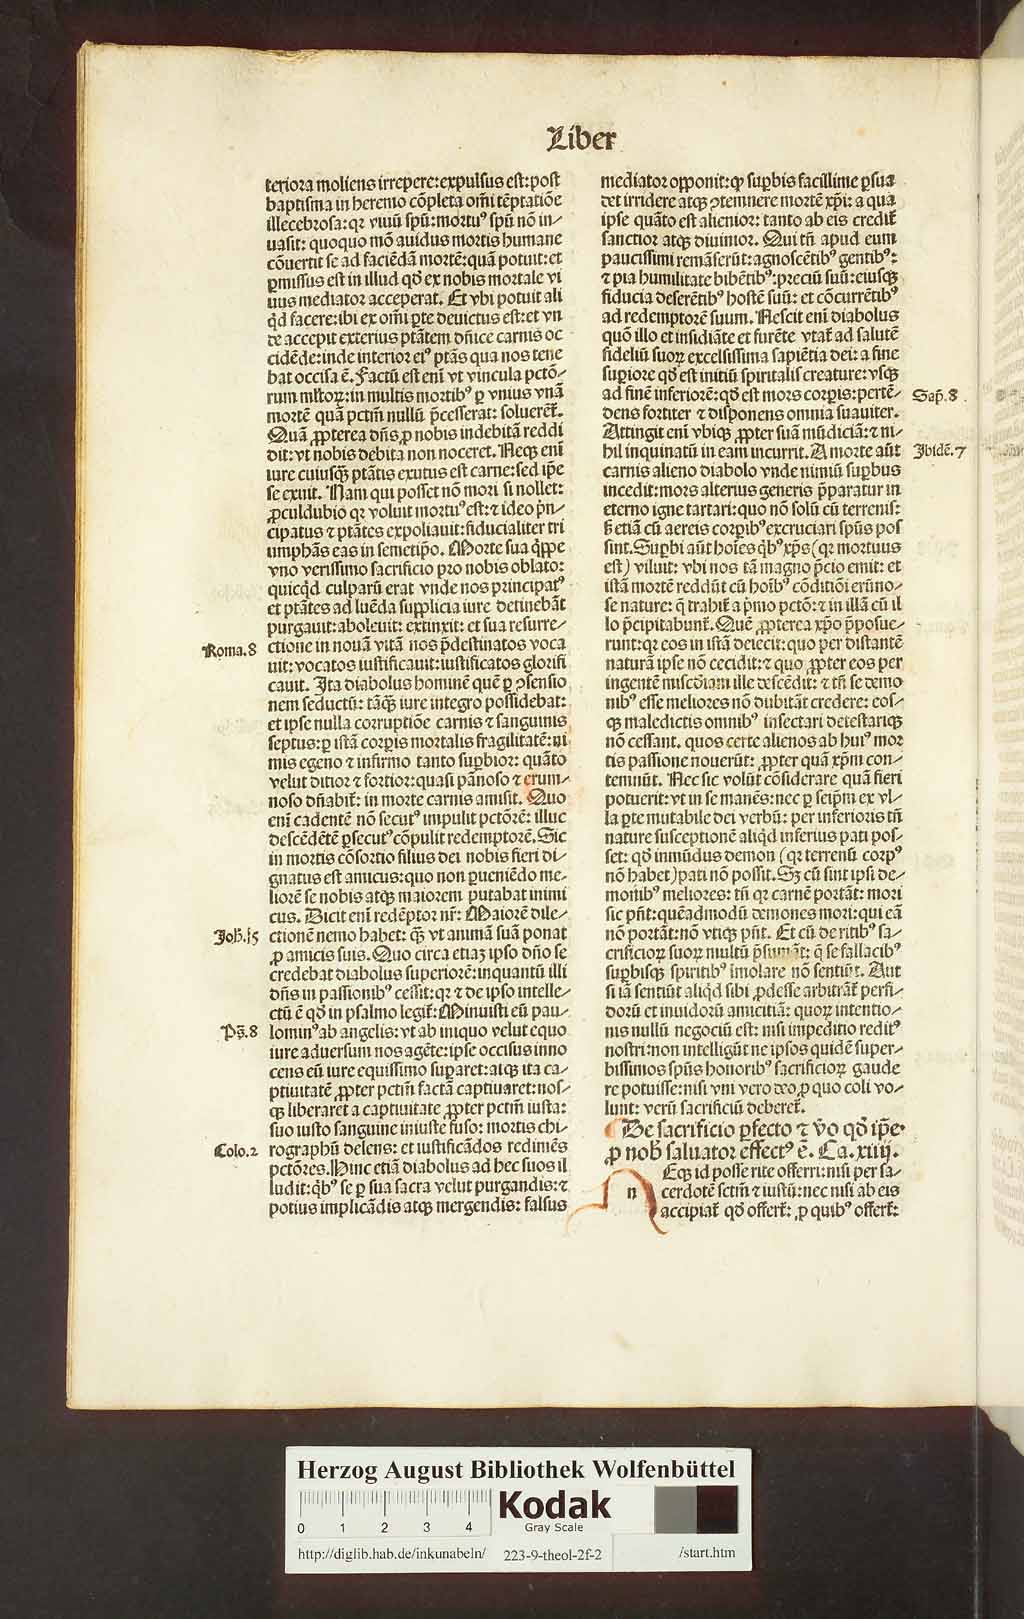 Liber
teriora moliens irrepere: expulsus est: post
baptisma in heremo cōpleta om̄i tēptatiōe
illecebrosa: qꝛ viuū spū: mortuꝰ spū nō in⸗
uasit: quoquo mō auidus mortis humane
cōuertit se ad faciēdā mortē: quā potuit: et
ꝑmissus est in illud qd̄ ex nobis mortale vi
uus mediator acceperat. Et vbi potuit ali
qd̄ facere: ibi ex om̄i ꝑte deuictus est: et vn
de accepit exterius ptātem dn̄ice carnis oc
cidēde: inde interior eiꝰ ptās qua nos tene
bat occisa ē. Factū est eni̅ vt vincula pctō⸗
rum ml̓toꝝ: in multis mortibꝰ ꝑ vnius vnā
mortē quā pctm̄ nullū p̄cesserat: soluerēt̉.
Quā ꝓpterea dn̄s ꝓ nobis indebitā reddi
dit: vt nobis debita non noceret. Neqꝫ eni̅
iure cuiusqꝫ ptātis exutus est carne: sed ip̄e
se exuit. Nam qui posset nō mori si nollet:
ꝓculdubio qꝛ voluit mortuꝰ est: ⁊ ideo p̄n⸗
cipatus ⁊ ptātes expoliauit: fiducialiter tri
umphās eas in semetip̄o. Morte sua q̄ppe
vno verissimo sacrificio pro nobis oblato:
quicqd̄ culparū erat vnde nos principatꝰ
et ptātes ad luēda supplicia iure detinebāt
purgauit: aboleuit: extinxit: et sua resurre⸗
Roma.8
ctione in nouā vitā nos p̄destinatos voca
uit: vocatos iustificauit: iustificatos glorifi
cauit. Ita diabolus hominē quē ꝑ ꝯsensio
nem seductū: tāqꝫ iure integro possidebat:
et ipse nulla corruptiōe carnis ⁊ sanguinis
septus: ꝑ istā corpis mortalis fragilitatē: ni
mis egeno ⁊ infirmo tanto supbior: quāto
velut ditior ⁊ fortior: quasi pānoso ⁊ erum⸗
noso dn̄abit̉: in morte carnis amisit. Quo
eni̅ cadentē nō secutꝰ impulit pctōrē: illuc
descēdētē ꝑsecutꝰ cōpulit redemptorē. Sic
in mortis cōsortio filius dei nobis fieri di⸗
gnatus est amicus: quo non ꝑueniēdo me⸗
liorē se nobis atqꝫ maiorem putabat inimi
cus. Dicit eni̅ redēptor nr̄: Maiorē dile⸗
Joh̄.15
ctionē nemo habet: qꝫ vt animā suā ponat
ꝓ amicis suis. Quo circa etiaꝫ ipso dn̄o se
credebat diabolus superiorē: inquantū illi
dn̄s in passionibꝰ cessit: qꝛ ⁊ de ipso intelle⸗
ctū ē qd̄ in psalmo legit̉: Minuisti eū pau⸗
Ps̄.8
lominꝰ ab angelis: vt ab iniquo velut equo
iure aduersum nos agēte: ipse occisus inno
cens eū iure equissimo supaꝛet: atqꝫ ita ca⸗
ptiuitatē ꝓpter pctm̄ factā captiuaret: nos⸗
qꝫ liberaret a captiuitate ꝓpter pctm̄ iusta:
suo iusto sanguine iniuste fuso: mortis chi⸗
Colo.2
rographū delens: et iustificādos redimēs
pctōres. Hinc etiā diabolus ad hec suos il
ludit: qb̄ꝰ se ꝑ sua sacra velut purgandis: ⁊
potius implicādis atqꝫ mergendis: falsus
mediator opponit: ꝙ supbis facillime ꝑsua
det irridere atqꝫ ꝯtemnere mortē xp̄i: a qua
ipse quāto est alienior: tanto ab eis credit̉
sanctior atqꝫ diuinior. Qui tn̄ apud eum
paucissimi remāserūt: agnoscētibꝰ gentibꝰ:
⁊ pia humilitate bibētibꝰ: preciū suū: eiusqꝫ
fiducia deserētibꝰ hostē suū: et cōcurrētibꝰ
ad redemptorē suum. Nescit eni̅ diabolus
quō illo et insidiāte et furēte vtat̉ ad salutē
fideliū suoꝝ excelsissima sapiētia dei: a fine
supiore qd̄ est initiū spiritalis creature: vsqꝫ
ad finē inferiorē: qd̄ est mors corpis: pertē⸗
Sap̄.8.
dens fortiter ⁊ disponens omnia suauiter.
Attingit eni̅ vbiqꝫ ꝓpter suā mūdiciā: ⁊ ni⸗
hil inquinatū in eam incurrit. A morte aūt
Ibidē.7
carnis alieno diabolo vnde nimiū supbus
incedit: mors alterius generis p̄paratur in
eterno igne tartari: quo nō solū cū terrenis:
sꝫ etiā cū aereis corpibꝰ excruciari spūs pos
sint. Supbi aūt hoīes qb̄ꝰ xp̄s (qꝛ mortuus
est) viluit: vbi nos tā magno p̄cio emit: et
istā mortē reddūt cū hoībꝰ cōditiōi erūno⸗
se nature: q̄ trahit̉ a p̄mo pctō: ⁊ in illā cū il
lo p̄cipitabunt̉. Quē ꝓpterea xp̄o p̄posue⸗
runt: qꝛ eos in istā deiecit: quo per distantē
naturā ipse nō cecidit: ⁊ quo ꝓpter eos per
ingentē misc̄diam ille descēdit: ⁊ tn̄ se demo
nibꝰ esse meliores nō dubitāt credere: eos⸗
qꝫ maledictis omnibꝰ insectari detestariqꝫ
nō cessant. quos certe alienos ab huiꝰ mor
tis passione nouerūt: ꝓpter quā xp̄m con⸗
temnūt. Nec sic volūt cōsiderare quā fieri
potuerit: vt in se manēs: nec ꝑ seip̄m ex vl⸗
la ꝑte mutabile dei verbū: per inferioris tn̄
nature susceptionē aliqd̄ inferius pati pos⸗
set: qd̄ immūdus demon (qꝛ terrenū corpꝰ
nō habet) pati nō possit. Sꝫ cū sint ipsi de⸗
monibꝰ meliores: tn̄ qꝛ carnē portāt: mori
sic pn̄t: quēadmodū demones mori: qui eā
nō portāt: nō vtiqꝫ pn̄t. Et cū de ritibꝰ sa⸗
crificioꝝ suoꝝ multū p̄sumāt: q̄ se fallacibꝰ
supbisqꝫ spiritibꝰ īmolare nō sentiūt. Aut
si iā sentiūt aliqd̄ sibi ꝓdesse arbitrāt̉ perfi⸗
dorū et inuidorū amicitiā: quoꝝ intentio⸗
nis nullū negociū est: nisi impeditio reditꝰ
nostri: non intelligūt ne ipsos quidē super⸗
bissimos spūs honoribꝰ sacrificioꝝ gaude
re potuisse: nisi vni vero deo, ꝓ quo coli vo⸗
lunt: verū sacrificiū deberet̉.
De sacrificio ꝑfecto ⁊ v̄o qd̄ ip̄e
ꝓ nob̄ saluator effectꝰ ē. Ca. xiiij.
n Eqꝫ id posse rite offerri: nisi per sa⸗
cerdotē sctm̄ ⁊ iustū: nec nisi ab eis
accipiat̉ qd̄ offert̉: ꝓ quibꝰ offert̉:
Herzog August Bibliothek Wolfenbüttel
0 1 2 3 4
Kodak
Gray Scale
http://diglib.hab.de/inkunabeln/ 223-9-theol-2f-2 /start.htm